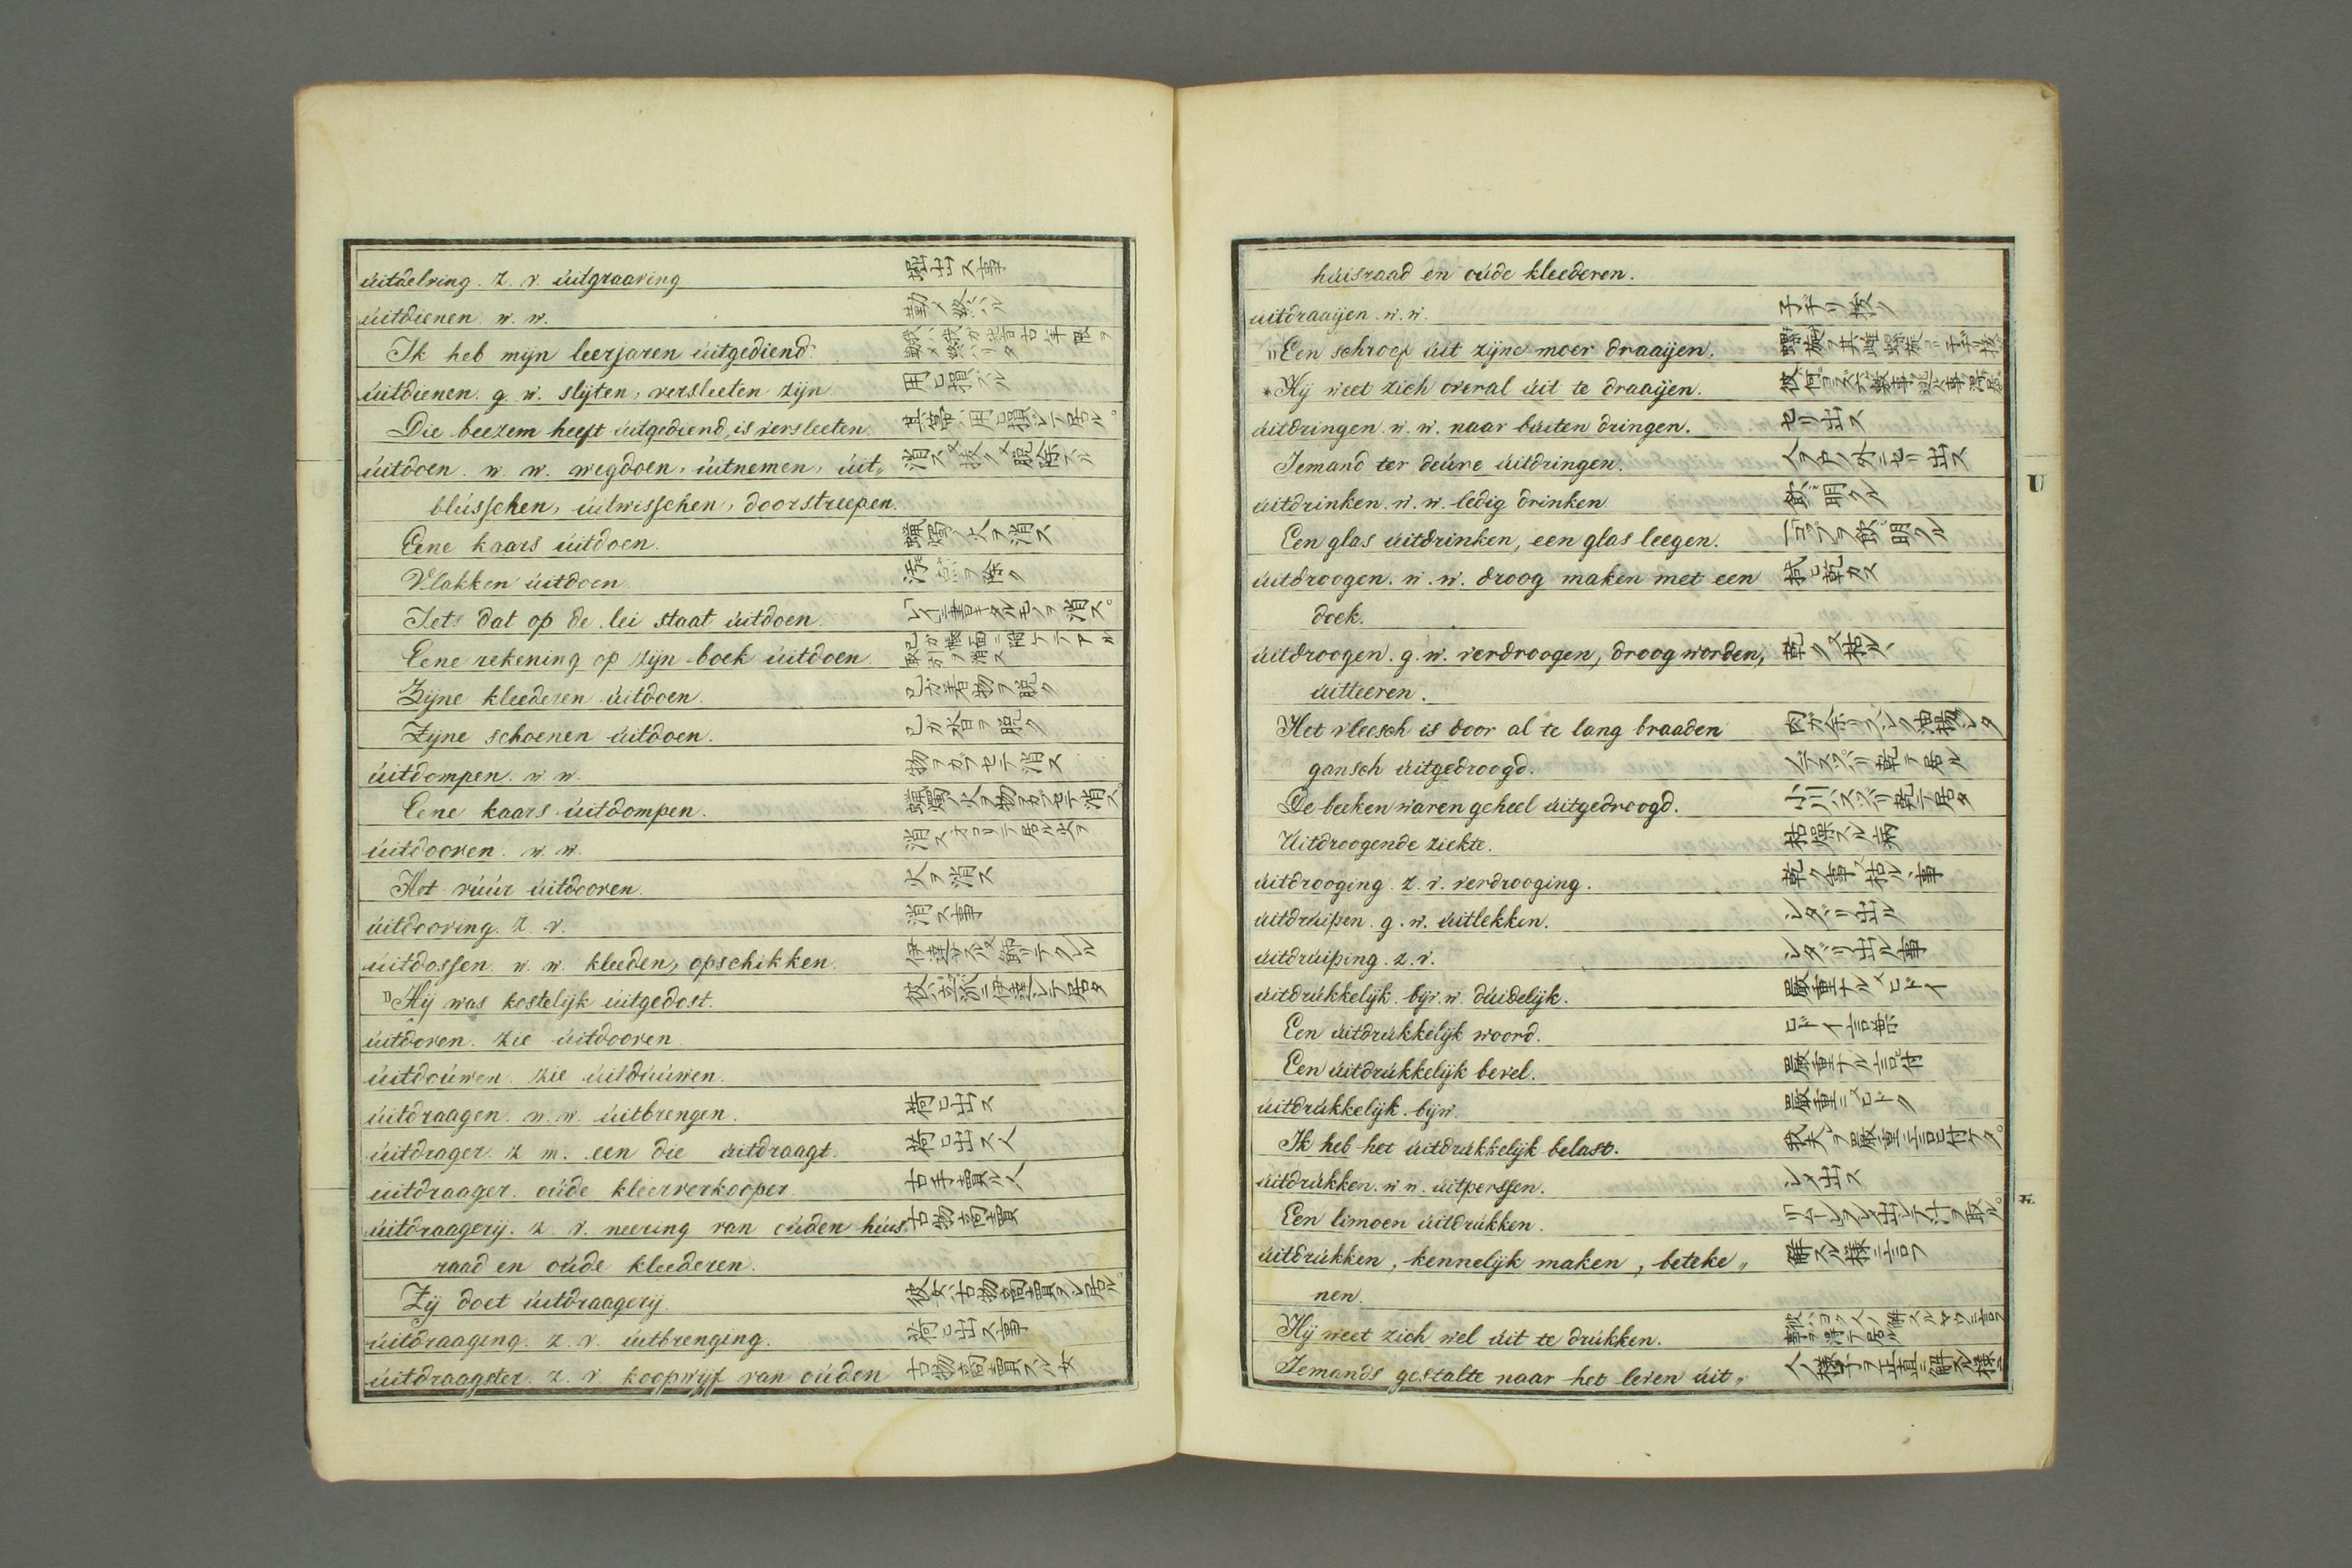 úitdelving. z. v. úitgraaving 掘出ス事
úitdienen. w. w. 勤メ終ハル
Ik heb mijn leerjaren úitgediend. 我ハ我ガ稽古年限ヲ勤メ終ハリタ
úitdienen. g. w. slijten, versleeten zijn 用ヒ損ズル
Die beezem heeft úitgediend, is versleeten. 其箒ハ用ヒ損ジテ居ル。
úitdoen. w. w. wegdoen, úitnemen, úit〃 消ス又抜ク又脱除スル
blússchen, úitwisschen, doorstreepen.
Eene kaars úitdoen. 蠟燭ノ火ヲ消ス
Vlakken úitdoen. 汚点ヲ除ク
Iets dat op de lei staat úitdoen. 「レイ」ニ書キタルモノヲ消ス。
Eene rekening op zijn boek úitdoen. 己ガ帳面ニ附ケテアル取引ヲ消ス
Zijne kleederen úitdoen. 己ガ着物ヲ脱ク
Zijne schoenen úitdoen. 己ガ沓ヲ脱ク
úitdompen. w w. 物ヲカブセテ消ス
Eene kaars úitdompen. 蠟燭ノ火ヲ物ヲカブセテ消ス。
úitdooven. w. w. 消ス オコリテ居ル火ヲ
Het vúúr úitdooven. 火ヲ消ス
úitdooving. z. v. 消ス事
úitdossen. w. w. kleeden, opschikken. 伊達スル又飾リテクル
〃Hij was kostelijk úitgedost. 彼ハ立派ニ伊達シテ居タ
úitdoven. zie úitdooven
úitdoúwen. zie úitdúúwen.
úitdraagen. w. w. úitbrengen. 荷ヒ出ス
úitdrager. z m. een die úitdraagt. 荷ヒ出ス人
úitdraager. oúde kleerverkooper 古手賣ル人
úitdraagerij. z. v. neering van oúden húis〃 古物商賣
raad en oúde kleederen.
Zij doet úitdraagerij. 彼女ハ古物商賣ヲシ居ル。
úitdraaging. z. v. úitbrenging. 荷ヒ出ス事
úitdraagster. z. v. koopwijf van oúden 古物商賣スル女
húisraad en oúde kleederen.
uitdraaijen. w. w. 子ヂリ抜ク
〃Een schroef úit zijne moer draaijen. 螺旋ヲ其雌螺旋ヨリ子ヂリ抜ク
*Hij weet zich overal úit te draaijen.
úitdringen. w. w. naar búiten dringen. セリ出ス
Iemand ter deúre úitdringen. 人ヲ戸ノ外ニセリ出ス
úitdrinken. w. w. ledig drinken 飲ミ明クル
Een glas úitdrinken, een glas leegen. 一コップヲ飲ミ明クル
úitdroogen. w. w. droog maken met een 拭ヒ乾カス
doek.
úitdroogen. g. w. verdroogen, droog worden, 乾ク又枯ル丶
úitteeren.
Het vleesch is door al te lang braaden
gansch úitgedroogd.
De beeken waren geheel úitgedroogd. 小川ハスツパリ乾テ居タ
Uitdroogende ziekte. 枯燥スル病
úitdrooging. z. v. verdrooging. 乾ク事又枯ル丶事
úitdrúipen. g. w. úitlekken. シタヾリ出ル
úitdrúiping. z. v. シタヾリ出ル事
úitdrúkkelijk. bijv. w. dúidelijk. 嚴重ナル又ヒドイ
Een úitdrúkkelijk woord. ヒドイ言葉
Een úitdrúkkelijk bevel. 嚴重ナル言付
úitdrúkkelijk. bijw. 嚴重ニ又ヒドク
Ik heb het úitdrúkkelijk belast. 我夫レヲ嚴重ニ言付ケタ。
úitdrúkken. w. w. úitperssen. シメ出ス
Een limoen úitdrúkken.
úitdrúkken, kennelijk maken, beteke〃 解スル様ニ言フ
nen.
Hij weet zich wel úit te drúkken.
Iemands gestalte naar het leven úit〃 人ノ様子ヲ正直ニ解スル様ニ
U